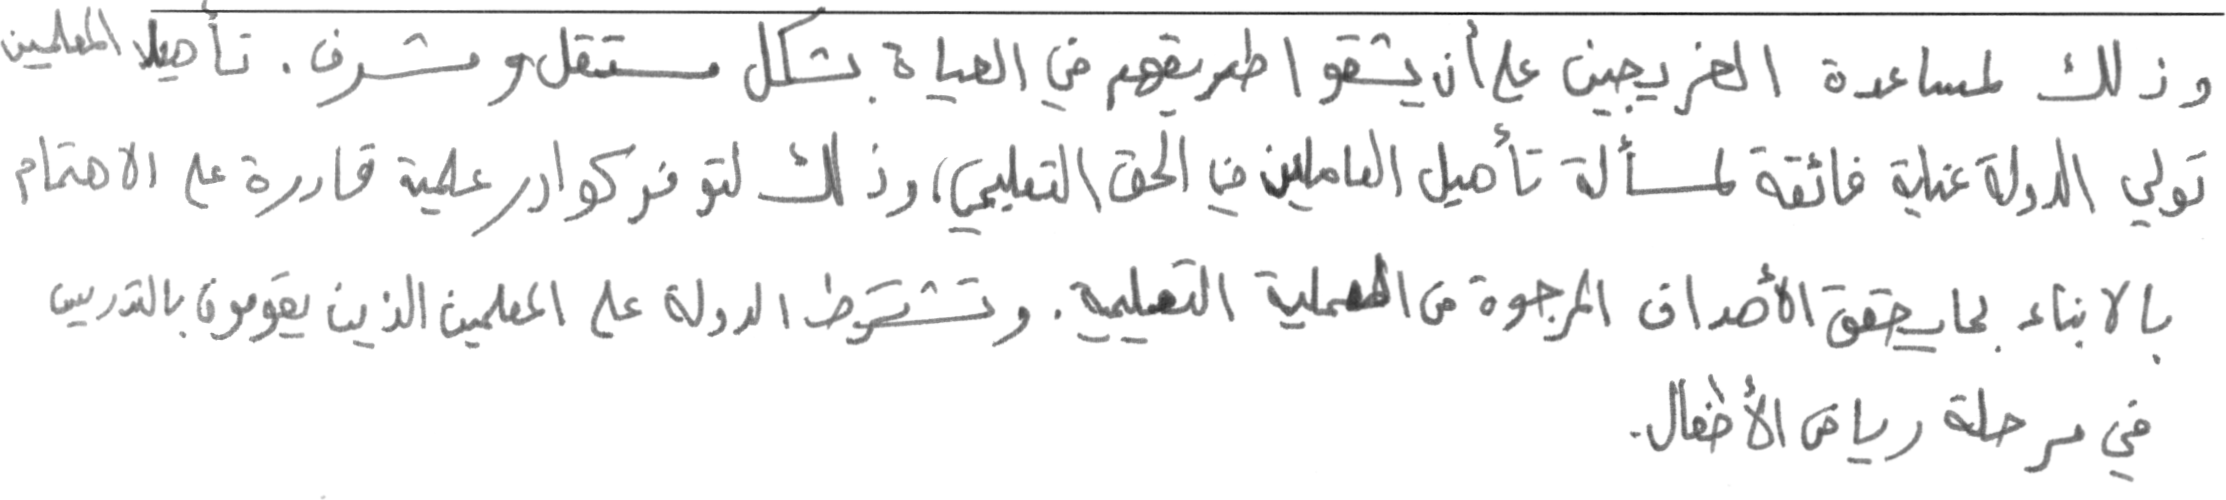 وذلك لمساعدة الخريجين على أن يشقوا طريقهم في الحياة بشكل مستقل ومشرف. تأهيل المعلمين
تولي الدولة عناية فائقة لمسألة تأهيل العاملين في الحقل التعليمي، وذلك لتوفر كوادر علمية قادرة على الاهتمام
بالابناء بما يحقق الأهداف المرجوة من العملية التعليمية. وتشترط الدولة على المعلمين الذين يقومون بالتدريس
في مرحلة رياض الأطفال.